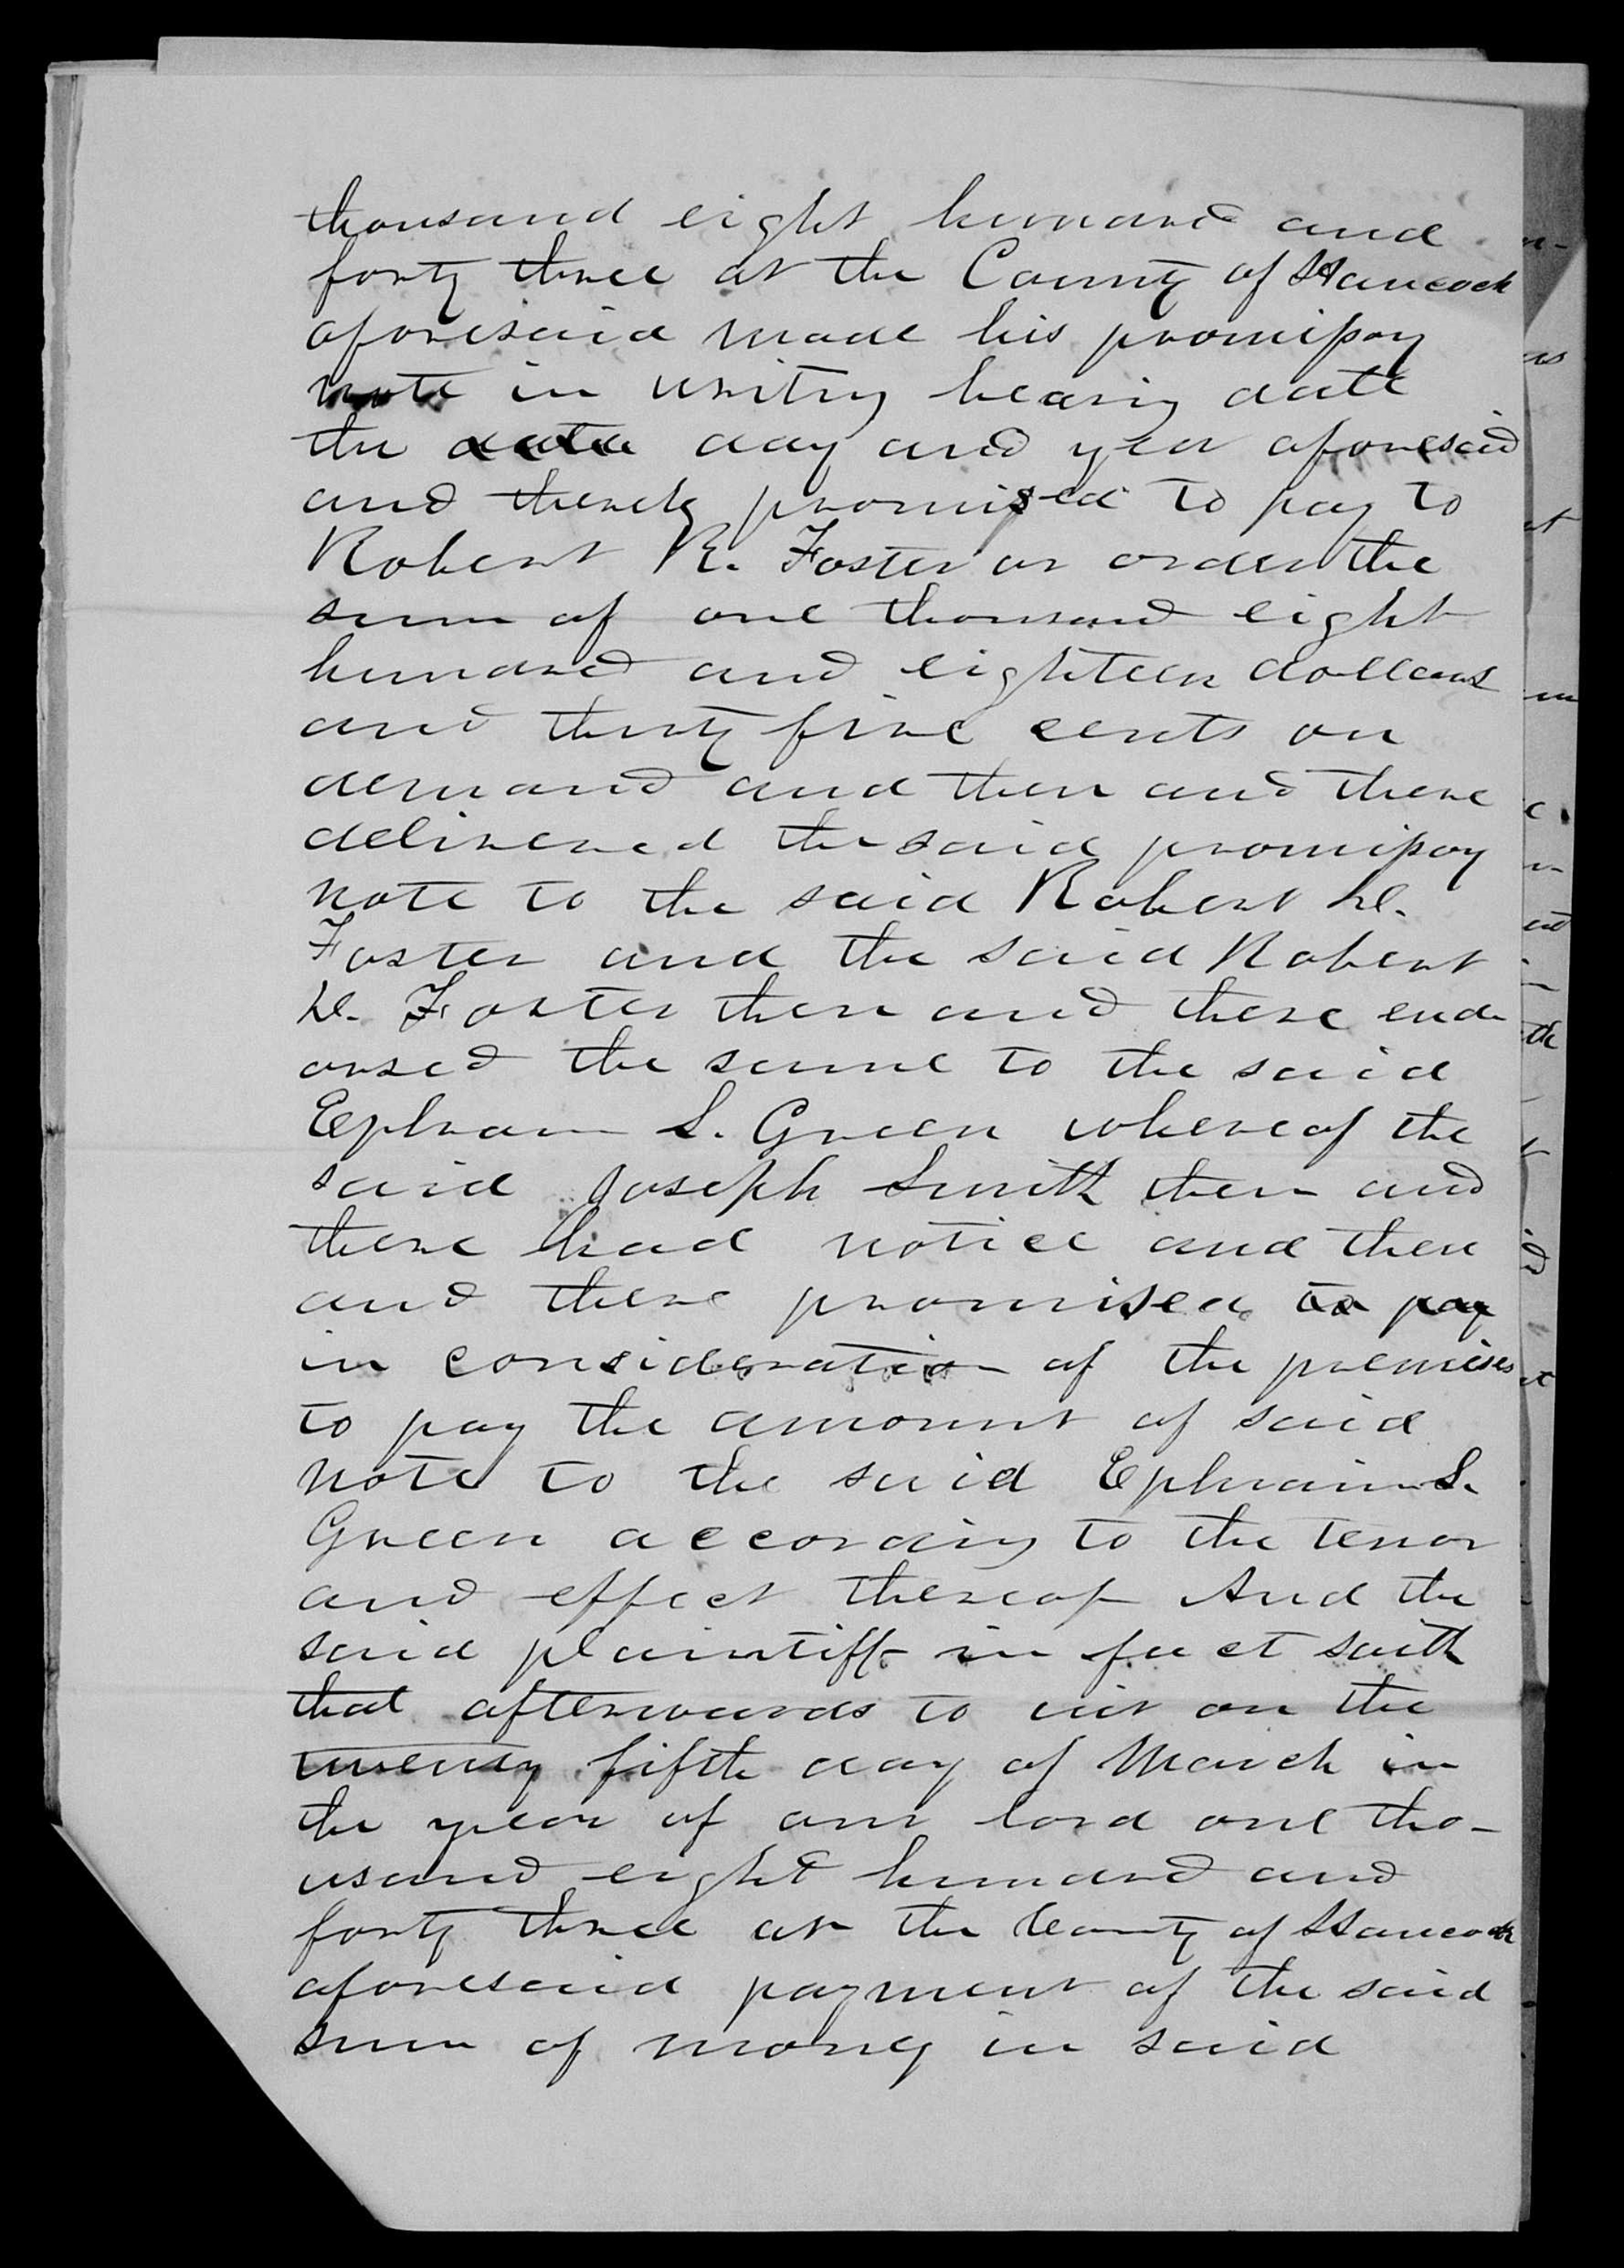 thousand eight hundred and
forty three at the County of Hancock
aforesaid made his promissory
note in writing bearing date
the date day and year aforesaid
and thereby promised to pay to
Robert R. Foster or order the
sum of one thousand eight
hundred and eighteen dollars
and thirty five cents on
demand and then and there
delivered the said promissory
note to the said Robert D.
Foster and the said Robert
D. Foster then and there end
orsed the same to the said
Ephraim S. Green whereof the
said Joseph Smith then and
there had notice and then
and there promised to pay
in consideration of the premises
to pay the amount of said
note to the said Ephraim S.
Green according to the tenor
and effect thereof And the
said plaintiff in fact saith
that afterwards to wit on the
twenty fifth day of March in
the year of our lord one tho-
usand eight hundred and
forty three at the County of Hancock
aforesaid payment of the said
sum of money in said